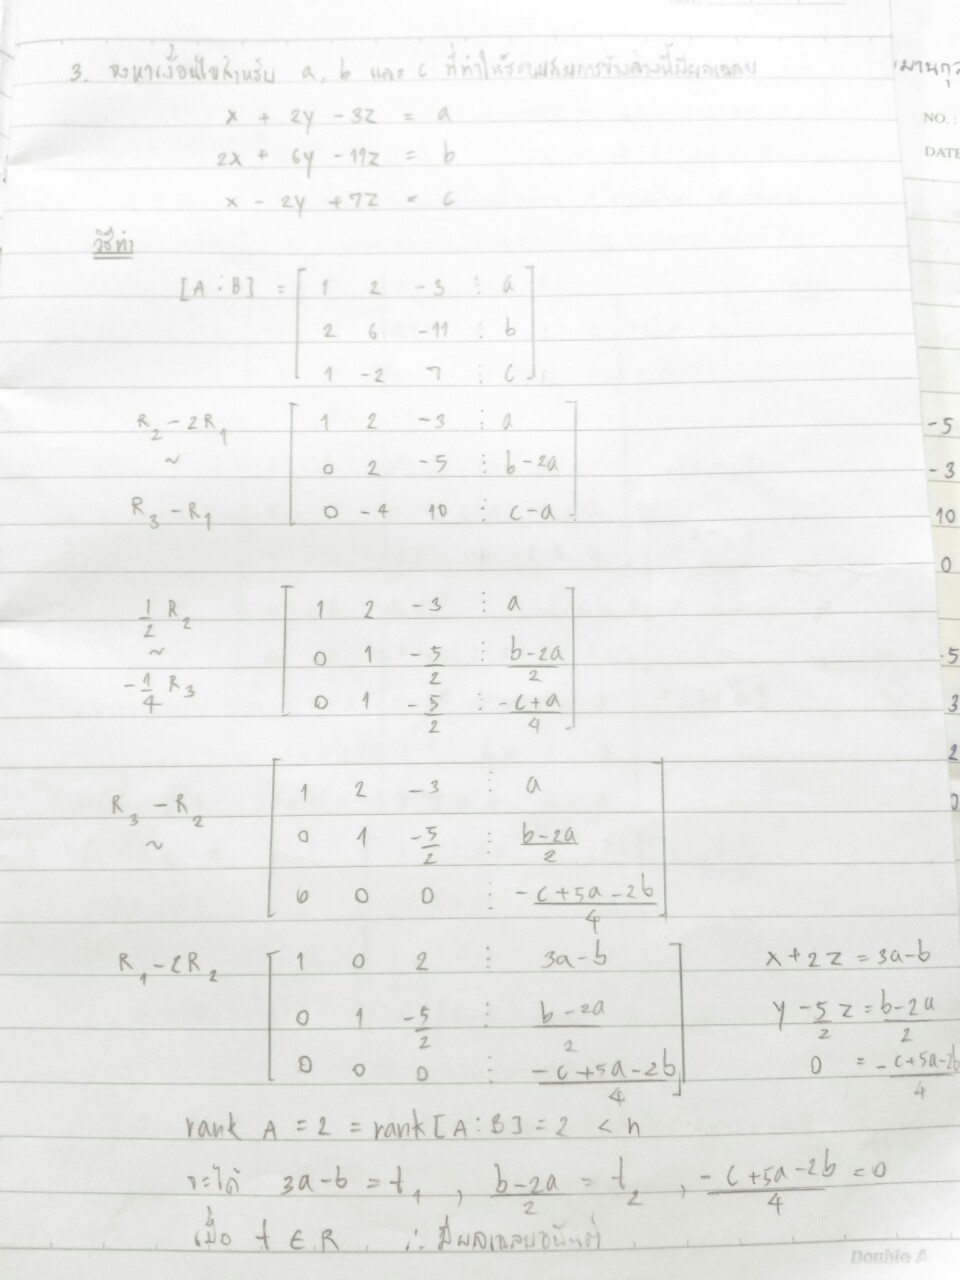 3. จงหาเงื่อนไขสำหรับ a, b และ c ที่ทำให้ระบบสมการข้างล่างนี้มีผลเฉลย
x + 2y - 3z = a
2x + 6y - 11z = b
x - 2y + 7z = c
วิธีทำ
[A ⋮ B] = [ 1 2 -3 ⋮ a
2 6 -11 ⋮ b
1 -2 7 ⋮ c ]
R₂ - 2R₁ [ 1 2 -3 ⋮ a
~ 0 2 -5 ⋮ b-2a
R₃ - R₁ 0 -4 10 ⋮ c-a ]
1/2 R₂ [ 1 2 -3 ⋮ a
~ 0 1 -5/2 ⋮ (b-2a)/2
-1/4 R₃ 0 1 -5/2 ⋮ (-c+a)/4 ]
R₃ - R₂ [ 1 2 -3 ⋮ a
~ 0 1 -5/2 ⋮ (b-2a)/2
0 0 0 ⋮ (-c+5a-2b)/4 ]
R₁ - 2R₂ [ 1 0 2 ⋮ 3a-b x + 2z = 3a-b
0 1 -5/2 ⋮ (b-2a)/2 y - 5/2 z = (b-2a)/2
0 0 0 ⋮ (-c+5a-2b)/4 ] 0 = (-c+5a-2b)/4
rank A = 2 = rank [A ⋮ B] = 2 < n
จะได้ 3a-b = t₁ , (b-2a)/2 = t₂ , (-c+5a-2b)/4 = 0
เมื่อ t ∈ R ∴ มีผลเฉลยอนันต์
NO. :
DATE
-5
-3
10
0
5
3
2
0
Double A